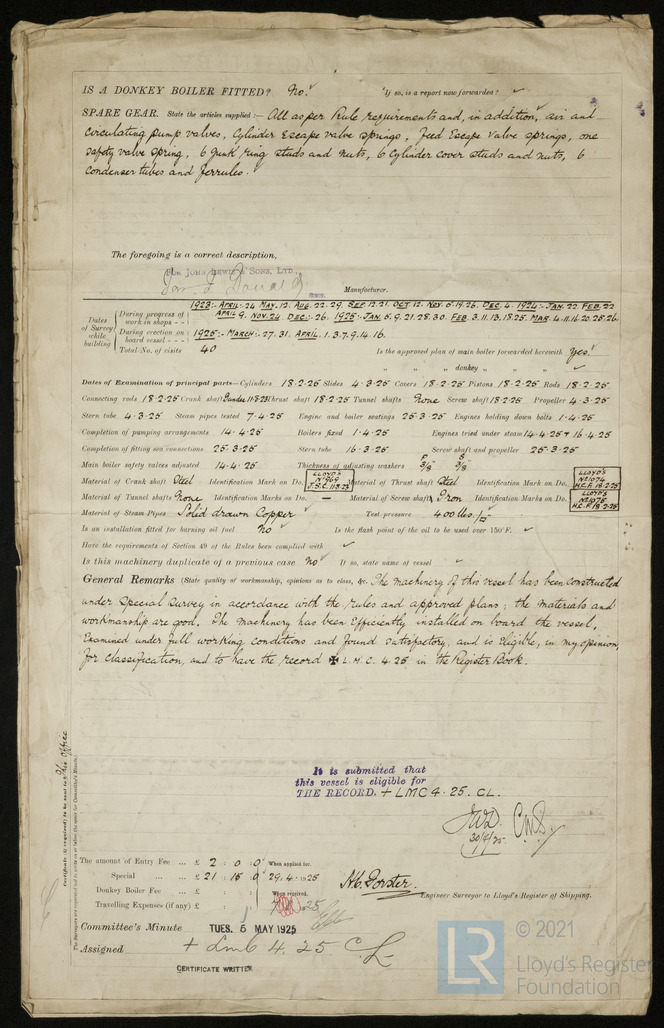 IS A DONKEY BOILER FITTED? No. If so, is a report now forwarded?
SPARE GEAR. State the articles supplied:— All as per Rule requirements and, in addition, air and
circulating pump valves, Cylinder Escape valve springs, Feed Escape Valve springs, one
safety valve spring, 6 junk ring studs and nuts, 6 Cylinder cover studs and nuts, 6
condenser tubes and ferrules.
The foregoing is a correct description,
FOR JOHN LEWIS & SONS, LTD.,
Manufacturer.
Dates of Survey while building
During progress of work in shops - - 1923:- APRIL. 24. MAY. 12. AUG. 22. 29. SEP. 12. 21. OCT. 12. NOV. 5. 19. 26. DEC. 4. 1924:- JAN. 22. FEB. 22
APRIL 9. NOV. 24. DEC:- 26. 1925:- JAN. 5. 9. 21. 28. 30. FEB. 3. 11. 13. 18. 25. MAR. 4. 11. 16. 20. 25. 26.
During erection on board vessel - - - 1925:- MARCH:- 27. 31. APRIL. 1. 3. 7. 9. 14. 16.
Total No. of visits 40 Is the approved plan of main boiler forwarded herewith Yes.
" " " donkey " " "
Dates of Examination of principal parts—Cylinders 18.2.25 Slides 4.3.25 Covers 18.2.25 Pistons 18.2.25 Rods 18.2.25
Connecting rods 18.2.25 Crank shaft Dundee 11.3.25 Thrust shaft 18.2.25 Tunnel shafts None Screw shaft 18.2.25 Propeller 4.3.25
Stern tube 4.3.25 Steam pipes tested 7.4.25 Engine and boiler seatings 25.3.25 Engines holding down bolts 1.4.25
Completion of pumping arrangements 14.4.25 Boilers fixed 1.4.25 Engines tried under steam 14.4.25 + 16.4.25
Completion of fitting sea connections 25.3.25 Stern tube 16.3.25 Screw shaft and propeller 25.3.25
Main boiler safety valves adjusted 14.4.25 Thickness of adjusting washers P 3/8" S 3/8"
Material of Crank shaft Steel Identification Mark on Do. LLOYD'S No 969 J.S.C. 11.3.25 Material of Thrust shaft Steel Identification Mark on Do. LLOYD'S No 1074 H.C.F. 18.2.25
Material of Tunnel shafts None Identification Marks on Do. — Material of Screw shafts Iron Identification Marks on Do. LLOYD'S No 1075 H.C.F. 18.2.25
Material of Steam Pipes Solid drawn Copper Test pressure 400 lbs/□"
Is an installation fitted for burning oil fuel No Is the flash point of the oil to be used over 150°F.
Have the requirements of Section 49 of the Rules been complied with
Is this machinery duplicate of a previous case No If so, state name of vessel
General Remarks (State quality of workmanship, opinions as to class, &c. The Machinery of this vessel has been constructed
under Special Survey in accordance with the rules and approved plans; the materials and
workmanship are good. The machinery has been Efficiently installed on board the vessel,
Examined under full working conditions and found satisfactory, and is Eligible, in my opinion,
for classification, and to have the record ✠ L.M.C. 4.25 in the Register Book.
It is submitted that
this vessel is eligible for
THE RECORD. + LMC 4.25. CL.
30/4/25
Certificate (if required) to be sent to
The amount of Entry Fee ... £ 2 : 0 : 0 When applied for,
Special ... ... £ 21 : 15 : 0 29.4.1925
Donkey Boiler Fee ... £ : : When received,
Travelling Expenses (if any) £ : :
H.C. Forster.
Engineer Surveyor to Lloyd's Register of Shipping.
Committee's Minute TUES. 5 MAY 1925
Assigned + LMC 4.25 C.L.
CERTIFICATE WRITTEN
LR
© 2021
Lloyd's Register
Foundation